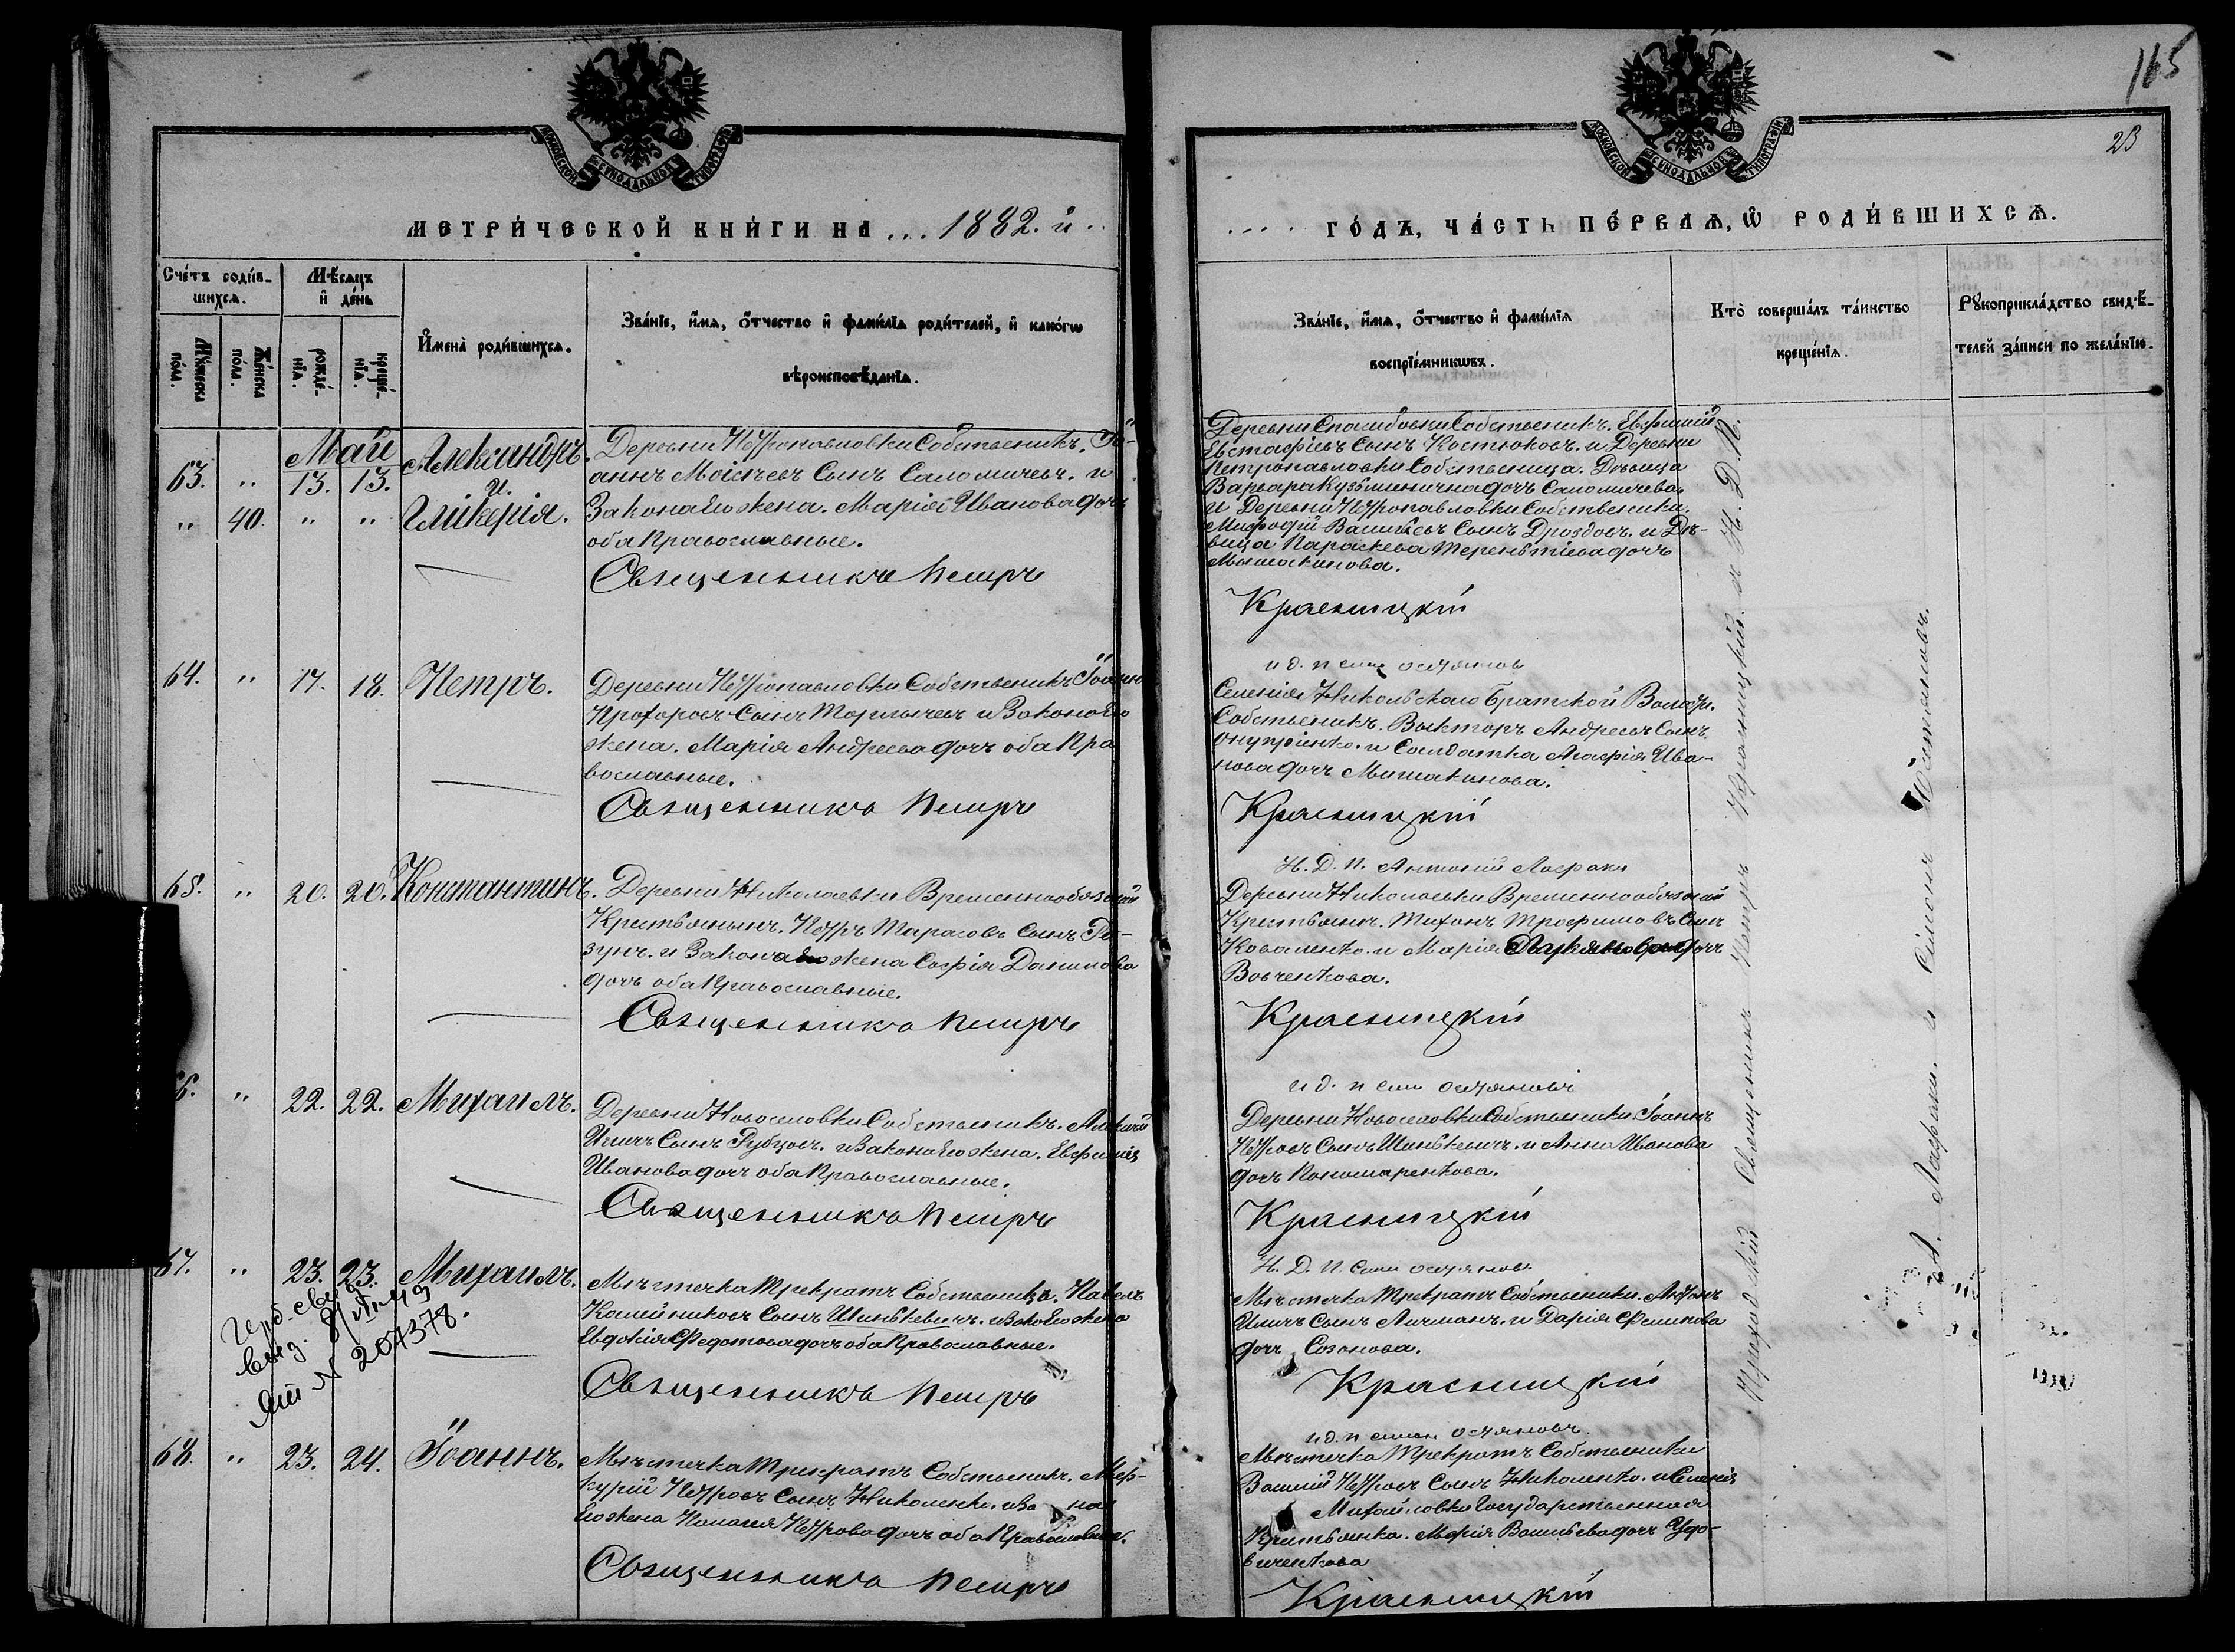 165
23
МОСКОВСКОЙ СѴНОДАЛЬНОЙ ТИПОГРАФІИ
МОСКОВСКОЙ СѴНОДАЛЬНОЙ ТИПОГРАФІИ
МЕТРИ́ЧЕСКОЙ КНИ́ГИ НА ... 1882. й
ГО́ДЪ, ЧА́СТЬ ПЕ́РВАѦ, Ѡ҆ РОДИ́ВШИХСѦ.
Сче́тъ роди́в-
шихсѧ.
Мꙋ́жеска по́ла.
Же́нска по́ла.
Мѣ́сѧцъ и҆ де́нь
рожде́-нїѧ.
креще́-нїѧ.
И҆мена̀ роди́вшихсѧ.
Зва́нїе, и҆́мѧ, ѻ҆́тчество и҆ фами́лїѧ роди́телей, и҆ како́гѡ
вѣроисповѣ́данїѧ.
Зва́нїе, и҆́мѧ, ѻ҆́тчество и҆ фами́лїѧ
воспрїе́мникѡвъ.
Кто̀ соверша́лъ та́инство
креще́нїѧ.
Рꙋкоприкла́дство свидѣ́-
телей за́писи по жела́нїю.
Май
63. " 13. 13. Александръ.
и.
" 40. " " Гликерія.
Деревни Петропавловки Собственикъ. Іо-
аннъ Моісѣевъ Сынъ Саломичевъ. и
Законая Его жена. Марія Иванова дочь
оба Православные.
Священникъ Петръ
Деревни Спасибовки Собственикъ. Евфимій
Евстафіевъ Сынъ Костюковъ. и Деревни
Петропавловки Собственица. Дѣвица
Варвара Кузьминична дочь Саломичева
и Деревни Петропавловки Собственики.
Мифодій Васильевъ Сынъ Дроздовъ. и Дѣ-
вица Параскева Терентіева дочь
Мышакинова.
Красницкій
64. " 17. 18. Петръ.
Деревни Петропавловки Собственикъ Іоаннъ
Прохоровъ Сынъ Торлычевъ и Законая Его
жена. Марія Андреева дочь оба Пра
вославные.
Священникъ Петръ
и д. п сим остянов
Селенія Никольскаго Братской Волости.
Собственикъ. Викторъ Андреевъ Сынъ
Онупріенко. и Солдатка Агафія Ива-
нова дочь Мышакинова.
Красницкій
65. " 20. 20. Константинъ.
Деревни Николаевки Временнообязаный
Крестьянинъ. Петръ Тарасовъ Сынъ
зунъ. и Законая Его жена Софія Данилова
дочь оба Православные.
Священникъ Петръ
Н. Д. П. Антоній Лафаки
Деревни Николаевки Временнообязаный
Крестьянинъ. Тихонъ Трофимовъ Сынъ
Коваленко. и Марія Лукянова дочь
Вовченкова.
Красницкій
66. " 22. 22. Михаилъ.
Деревни Новоселовки Собственикъ. Алексій
Ильичъ Сынъ Рубцовъ. и Законая Его жена. Евфимія
Иванова дочь оба Православные.
Священникъ Петръ
и д. п сим остяновъ
Деревни Новоселовки Собственики Іоаннъ
Петровъ Сынъ Шинькевичъ. и Анна Иванова
дочь Пономаренкова.
Красницкій
67. " 23. 23. Михаилъ.
Мѣстечка Трикратъ Собственица. Павелъ
Калейниковъ Сынъ Шинькевичъ. и Зако Его жена
Евдокія Федотова дочь оба Православные.
Священникъ Петръ
Н. Д. П. Сим остянов
Мѣстечка Трикратъ Собственики. Антонъ
Ильичъ Сынъ Личманъ. и Дарія Филипова
дочь Созонова.
Красницкій
№ 207378.
68. " 23. 24. Іоаннъ.
Мѣстечка Трикратъ Собственикъ. Мер-
курій Петровъ Сынъ Николенко. и За ная
Его жена Пелагея Петрова дочь оба Православные.
Священникъ Петръ
и д. п симон остяновъ.
Мѣстечка Трикратъ Собственики
Василій Петровъ Сынъ Николенко. и Селенія
Михайловки Государственная
Крестьянка. Марія Васильева дочь Удо-
виченкова
Красницкій
Приходскій Священникъ Петръ Красницкій. и Н. Д. П.
А. Лафаки. и Сімонъ Остяновъ.